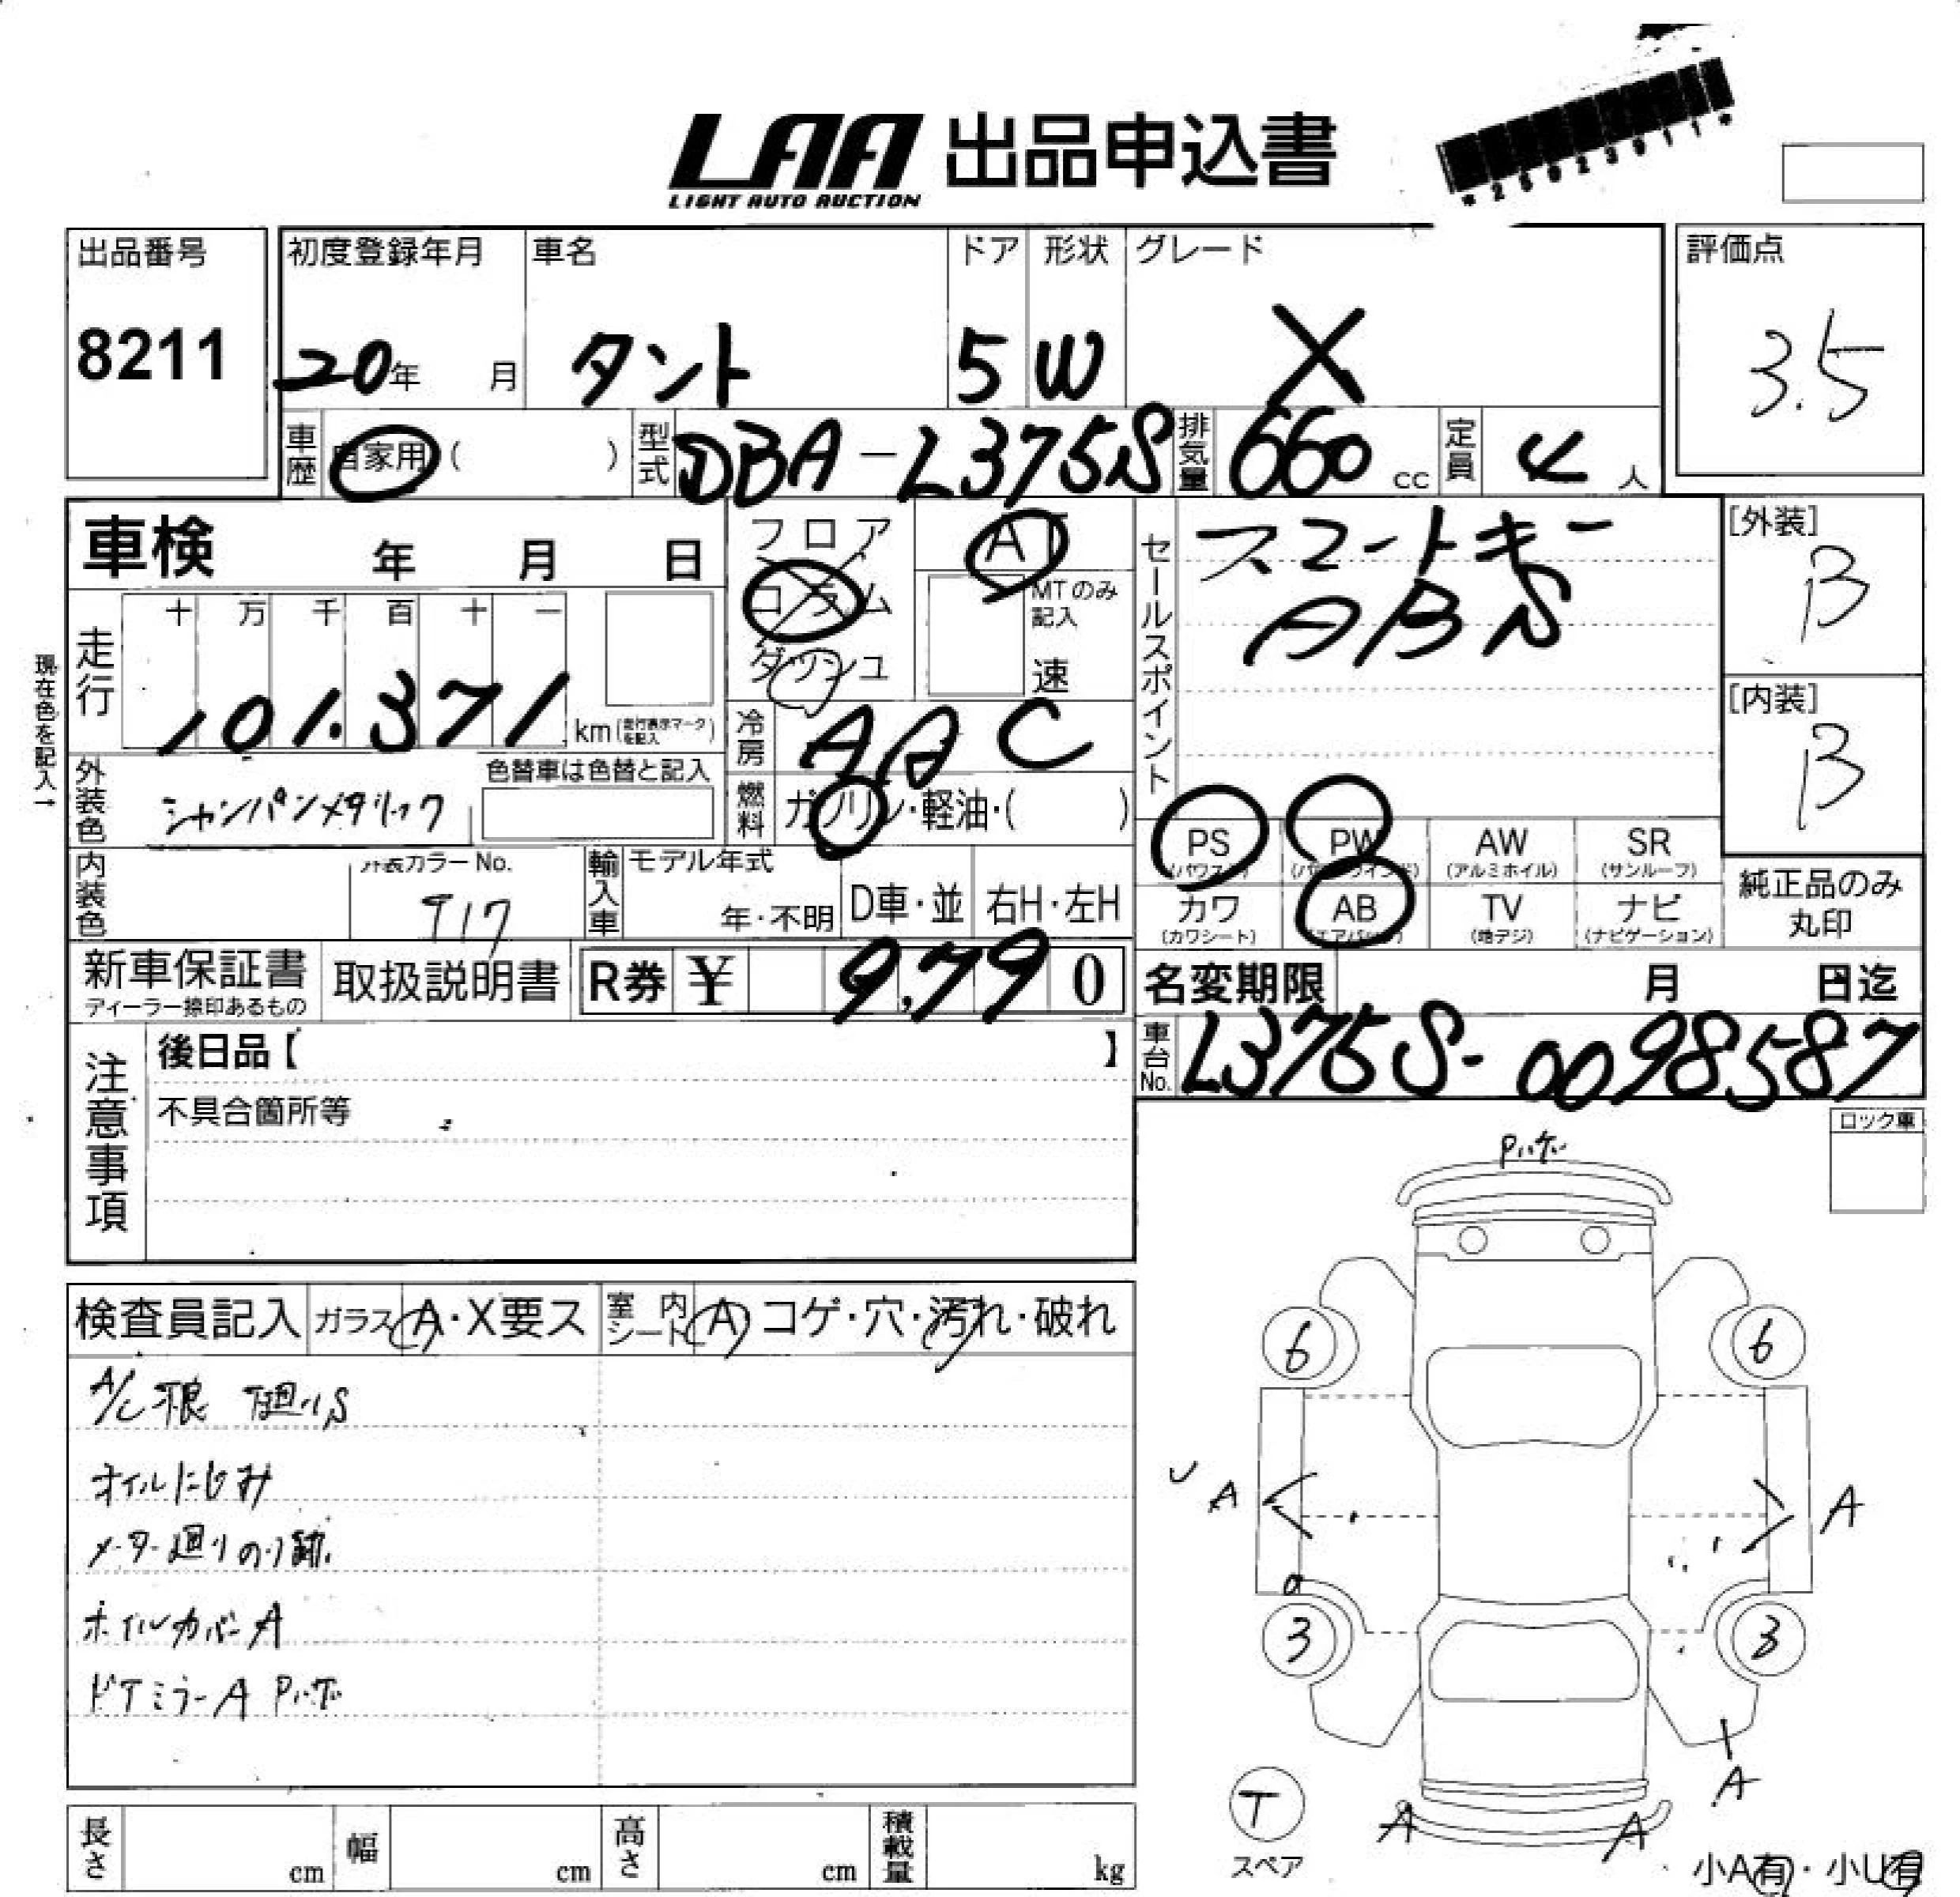 LAA 出品申込書
LIGHT AUTO AUCTION
*25023911*
出品番号 初度登録年月 車名 ドア 形状 グレード 評価点
8211 20年 月 タント 5 W X 3.5
車歴 自家用 ( ) 型式 DBA-L375S 排気量 660 cc 定員 4 人
車検 年 月 日
フロア AT
コラム MTのみ記入
ダッシュ 速
セールスポイント スマートキー
ABS
[外装] B
[内装] B
現在色を記入→
走行 十 万 千 百 十 一
101.371 km (走行表示マークを記入)
冷房 AAC
外装色 シャンパンメタリック 色替車は色替と記入
燃料 ガソリン・軽油・( )
PS (パワステ) PW (パワーウインド) AW (アルミホイル) SR (サンルーフ)
カワ (カワシート) AB (エアバッグ) TV (地デジ) ナビ (ナビゲーション)
純正品のみ丸印
内装色 外装カラーNo. T17 輸入車 モデル年式 年・不明 D車・並 右H・左H
新車保証書 取扱説明書 R券 ¥ 9,790
ディーラー捺印あるもの
名変期限 月 日迄
車台No. L375S-0098587
注意事項 後日品【 】
不具合箇所等
ロック車
Pハゲ
検査員記入 ガラス A・X要ス 室内シート A コゲ・穴・汚れ・破れ
A/C不良 下廻りS
オイルにじみ
メーター廻りのり跡
ホイルカバーA
ドアミラーA Pハゲ
6 6
A A
3 3
A
T A A
スペア
小A有・小U有
長さ cm 幅 cm 高さ cm 積載量 kg